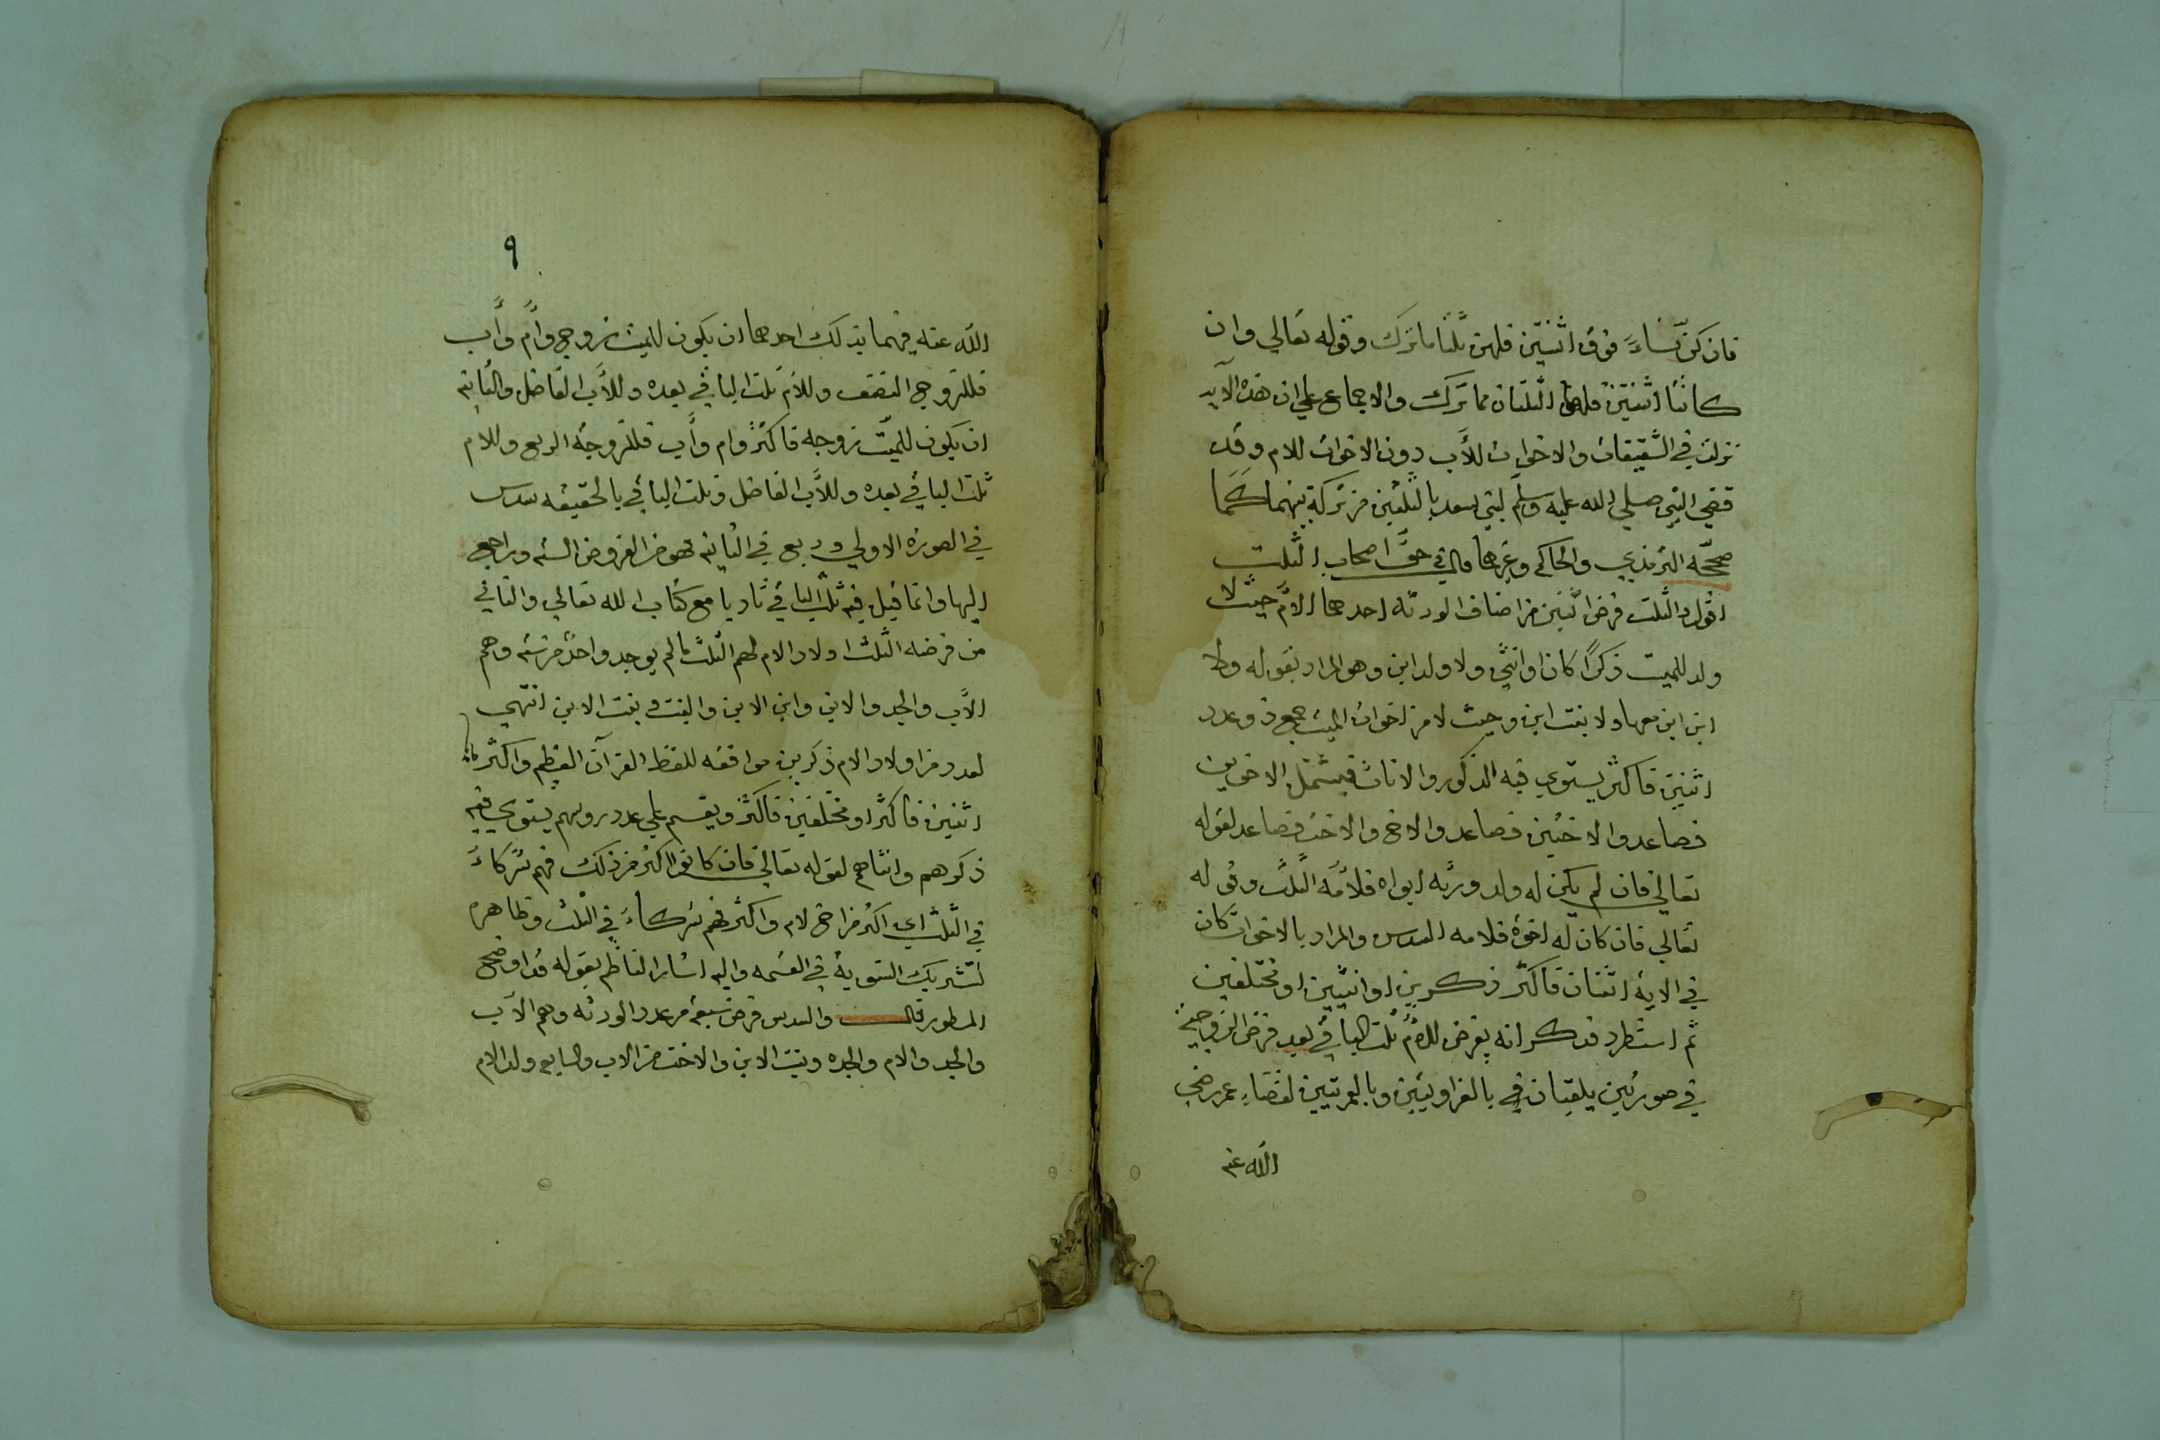 فان كن نساءً فوق اثنتين فلهن ثلثا ما ترك وقوله تعالي وان
كانتا اثنتين فلهما الثلثان مما ترك والاجماع علي ان هذه الآيه
نزلت في الشقيقات والاخوات للأب دون الاخوات للام وقد
قضي النبي صلي الله عليه وسلم لبنتي سعد بالثلثين من تركة بينهما كما
صححه الترمذي والحاكم وغيرهما قال في حق اصحاب الثلث
اقول والثلث فرض اثنين من اصناف الورثه احدهما الام حيث لا
ولد للميت ذكرًا كان او انثي ولا ولد ابن وهو المراد بقوله ولا
ابن ابن معها ولا بنت ابن وحيث لا من اخوات الميت جمع ذو عدد
اثنين فاكثر يستوي فيه الذكور والاناث فيشمل الاخوين
فصاعدو الاختين فصاعد والاخ والاخت فصاعد لقوله
تعالي فان لم يكن له ولد وورثه ابواه فلأمه الثلث وقوله
تعالي فان كان له اخوة فلامه السدس والمراد بالاخوات كان
في الاية اثنان فاكثر ذكرين او انثيين او مختلفين
ثم استطرد فذكر انه يفرض للام ثلث الباقي بعد فرض الزوجية
في صورتين يلقبان في بالغراويين وبالعمريتين لقضاء عمر رضي
الله عنه
٩
الله عنه فيهما بذلك احدهما ان يكون للميت زوج وأم وأب
فللزوج النصف وللأم ثلث الباقي بعده وللأب الفاضل والثانيه
ان يكون للميت زوجه فاكثر وام وأب فللزوجه الربع وللام
ثلث الباقي بعده وللأب الفاضل وثلث الباقي بالحقيقه سدس
في الصورة الاولي وربع في الثانيه فهو من الفروض السته وراجع
اليها وانما قيل فيه ثلث الباقي تاديا مع كتاب الله تعالي والثاني
من فرضه الثلث اولاد الام لهم الثلث ما لم يوجد واحد من سته وهم
الأب والجد والابن وابن الابن والبنت وبنت الابن انتهي
لعدد من اولاد الام ذكرين موافقه للفظ القرآن العظيم واكثر كانا
اثنين فاكثر او مختلفين فاكثر ويقسم علي عدد روسهم يستوي فيه
ذكرهم وانثاهم لقوله تعالي فان كانوا اكثر من ذلك فهم شركاءَ
في الثلث اي اكثر من اخ لام واكثر فهم شركاءَ في الثلث وظاهره
لتشريك التسوية في القسمه واليه اشار الناظم بقوله قد اوضح
المسطور قال والسدس فرض سبعة من عدد الورثه وهم الأب
والجد والام والجده وبنت الابن والاخت من الاب والسابع ولد الام